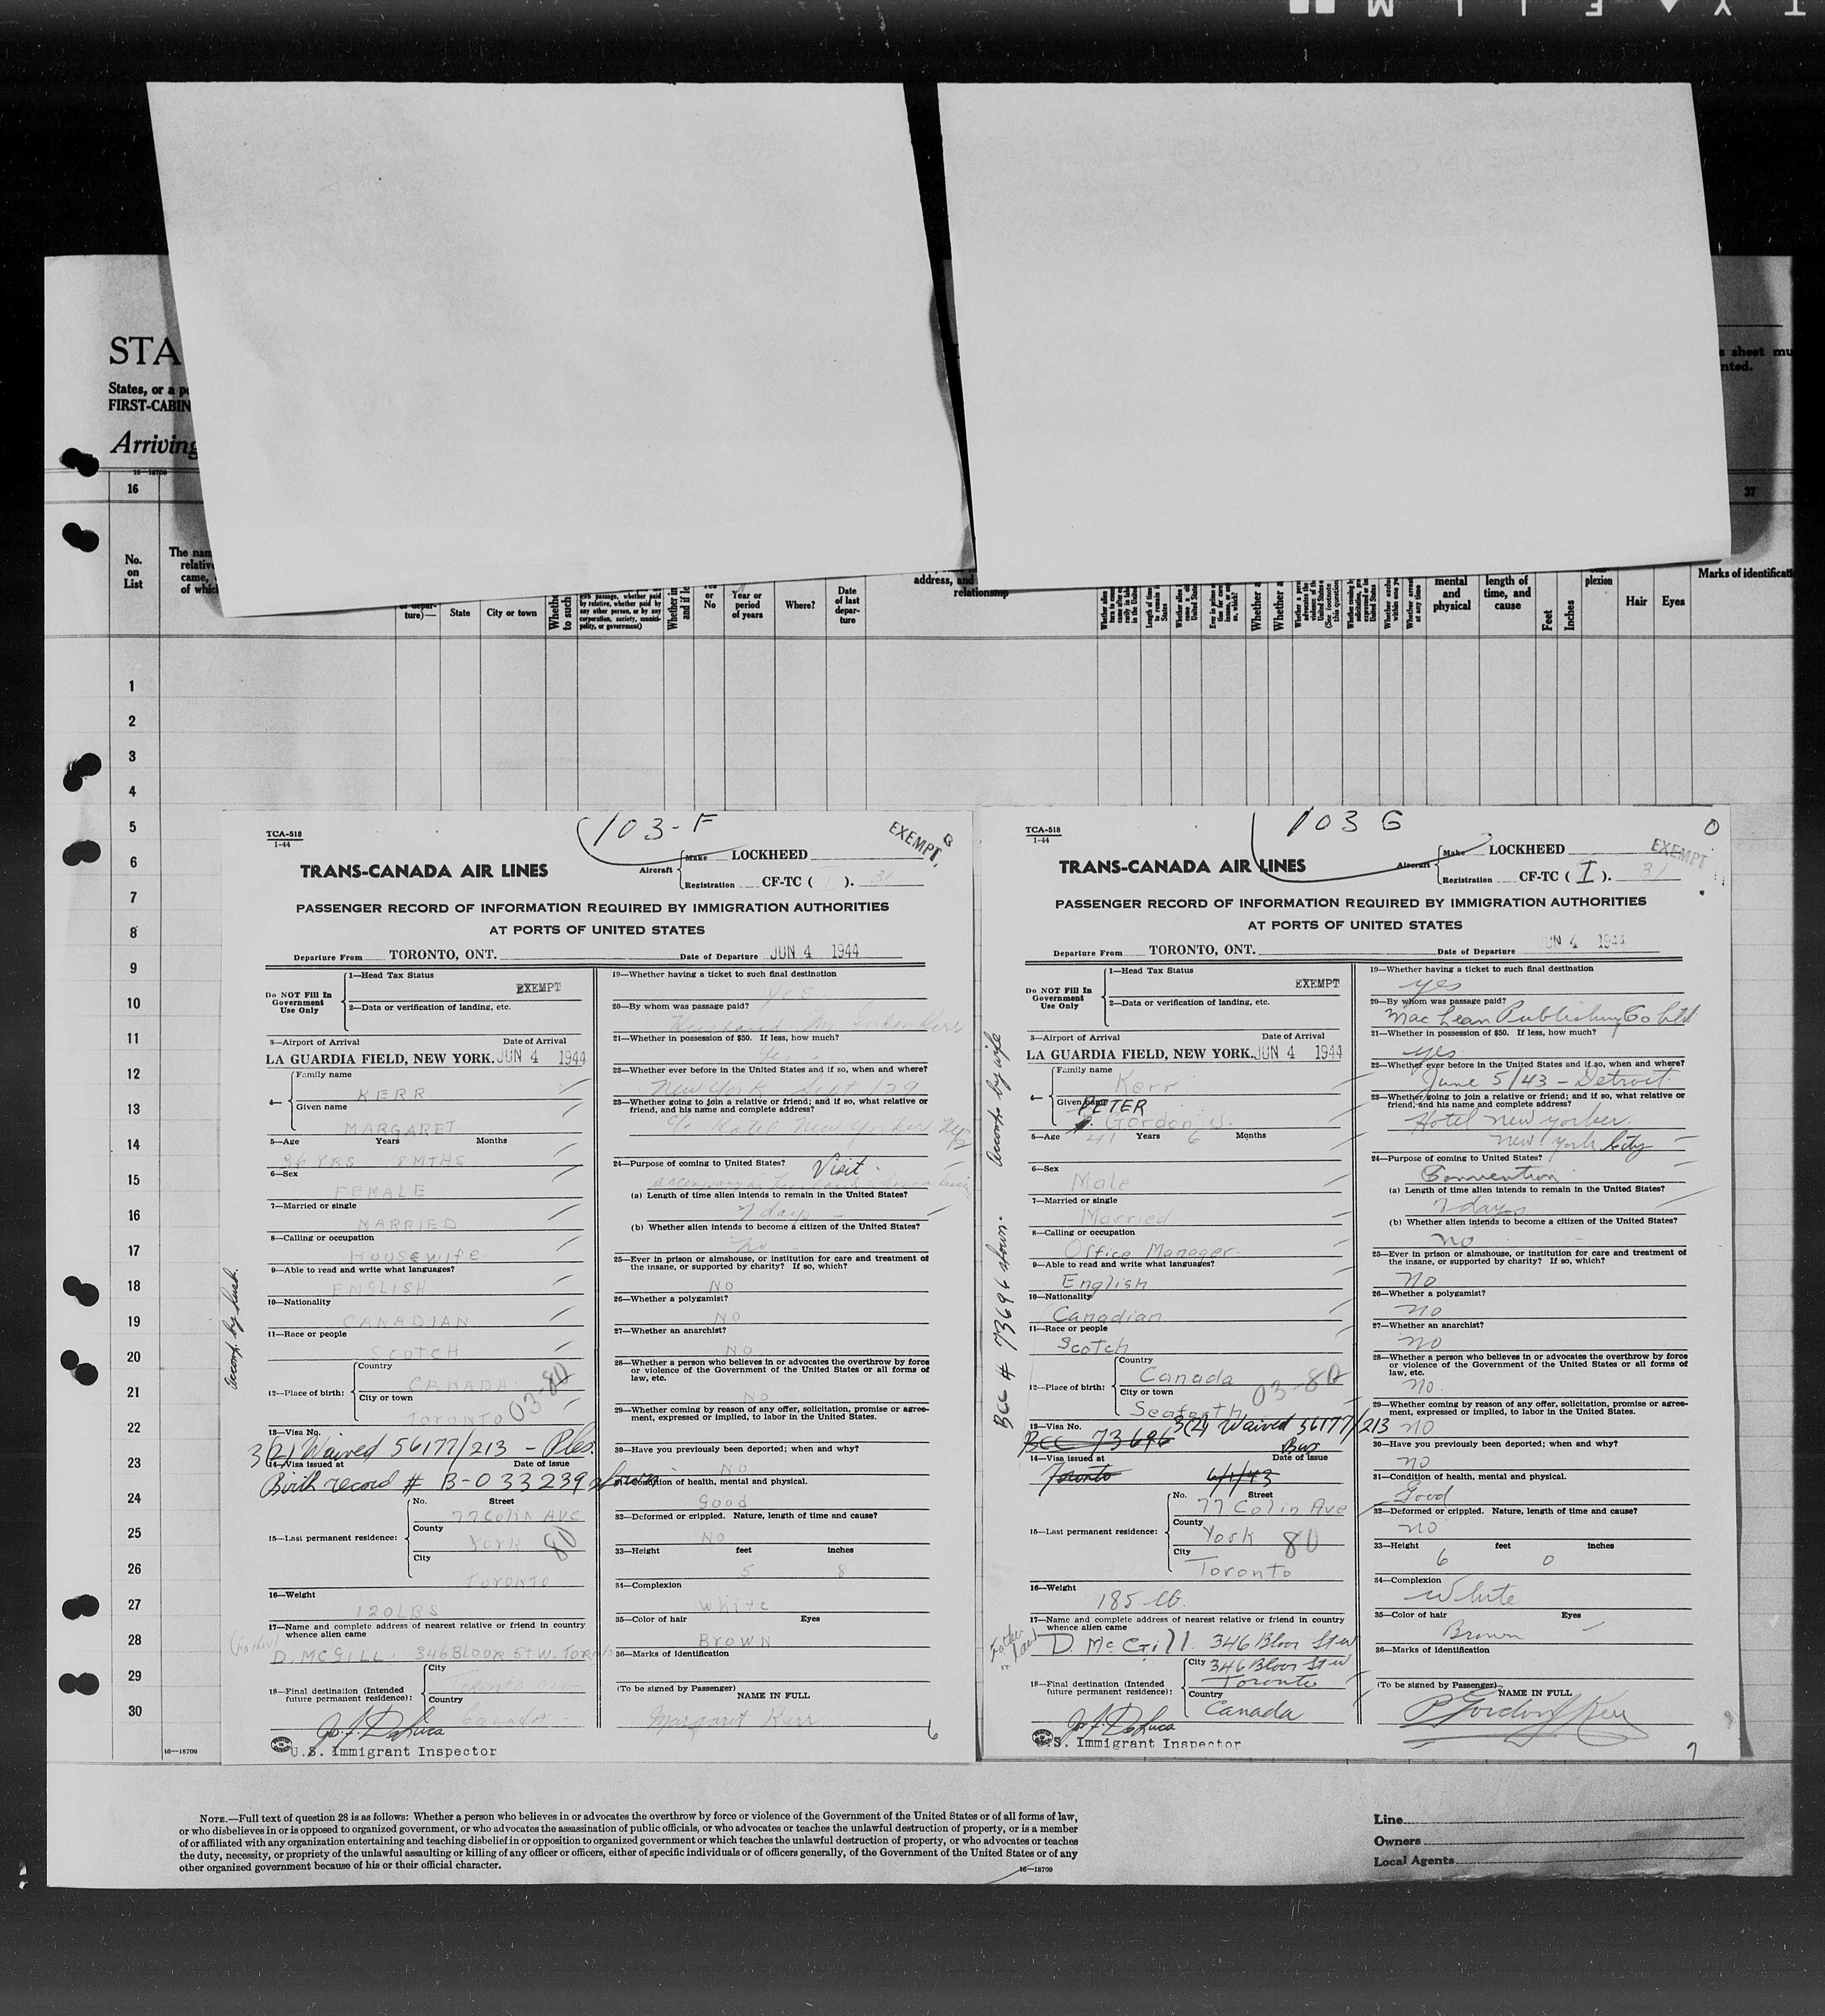 STA
States, or a po
FIRST-CABIN
Arriving
16—18709
16
37
s sheet mu
nted.
No.
on
List
The nam
relative
came,
of which
ture)—
State
City or town
Whethe
to such
own passage, whether paid
by relative, whether paid by
any other person, or by any
corporation, society, munici-
pality, or government)
Whether in
and if le
or
No
Year or
period
of years
Where?
Date
of last
depar-
ture
address, and
relationship
mental
and
physical
length of
time, and
cause
Feet
Inches
plexion
Hair
Eyes
Marks of identificati
1
2
3
4
5
6
7
8
9
10
11
12
13
14
15
16
17
18
19
20
21
22
23
24
25
26
27
28
29
30
16—18709
TCA-518
1-44
103-F
EXEMPT
TRANS-CANADA AIR LINES
Aircraft
Make LOCKHEED
Registration CF-TC ( ). 31
PASSENGER RECORD OF INFORMATION REQUIRED BY IMMIGRATION AUTHORITIES
AT PORTS OF UNITED STATES
Departure From TORONTO, ONT. Date of Departure JUN 4 1944
Do NOT Fill In
Government
Use Only
1—Head Tax Status
EXEMPT
2—Data or verification of landing, etc.
3—Airport of Arrival Date of Arrival
LA GUARDIA FIELD, NEW YORK. JUN 4 1944
4—
Family name
KERR
Given name
MARGARET
5—Age Years Months
36 YRS 8 MTHS
6—Sex
FEMALE
7—Married or single
MARRIED
8—Calling or occupation
HOUSEWIFE
9—Able to read and write what languages?
ENGLISH
10—Nationality
CANADIAN
11—Race or people
SCOTCH
12—Place of birth:
Country
CANADA
City or town
TORONTO
03-80
13—Visa No.
3(2) Waived 56177/213 - Ples.
14—Visa issued at Date of Issue
Birth record # B-033239 shown
15—Last permanent residence:
No. Street
77 COLIN AVE
County
YORK 80
City
TORONTO
16—Weight
120 LBS
17—Name and complete address of nearest relative or friend in country
whence alien came
(Father)
D. MCGILL. 346 BLOOR ST W. TORONTO
18—Final destination (Intended
future permanent residence):
City
Toronto
Country
Canada
Jo. J. DeLuca
U.S. Immigrant Inspector
Accomp. by husb.
19—Whether having a ticket to such final destination
YES
20—By whom was passage paid?
Husband Mr. Gordon Kerr
21—Whether in possession of $50. If less, how much?
Yes
22—Whether ever before in the United States and if so, when and where?
New York Sept /29
23—Whether going to join a relative or friend; and if so, what relative or
friend, and his name and complete address?
c/o Hotel New Yorker
24—Purpose of coming to United States? Visit.
(a) Length of time alien intends to remain in the United States?
7 days
(b) Whether alien intends to become a citizen of the United States?
No
25—Ever in prison or almshouse, or institution for care and treatment of
the insane, or supported by charity? If so, which?
NO
26—Whether a polygamist?
NO
27—Whether an anarchist?
NO
28—Whether a person who believes in or advocates the overthrow by force
or violence of the Government of the United States or all forms of
law, etc.
NO
29—Whether coming by reason of any offer, solicitation, promise or agree-
ment, expressed or implied, to labor in the United States.
30—Have you previously been deported; when and why?
NO
31—Condition of health, mental and physical.
Good
32—Deformed or crippled. Nature, length of time and cause?
NO
33—Height feet inches
5 8
34—Complexion
White
35—Color of hair Eyes
BROWN
36—Marks of identification
(To be signed by Passenger)
NAME IN FULL
Margaret Kerr
6
TCA-518
1-44
103 G
EXEMPT
TRANS-CANADA AIR LINES
Aircraft
Make LOCKHEED
Registration CF-TC ( I ). 31
PASSENGER RECORD OF INFORMATION REQUIRED BY IMMIGRATION AUTHORITIES
AT PORTS OF UNITED STATES
Departure From TORONTO, ONT. Date of Departure JUN 4 1944
Do NOT Fill In
Government
Use Only
1—Head Tax Status
EXEMPT
2—Data or verification of landing, etc.
3—Airport of Arrival Date of Arrival
LA GUARDIA FIELD, NEW YORK. JUN 4 1944
4—
Family name
Kerr
Given name
PETER
Gordon S.
5—Age Years Months
41 6
6—Sex
Male
7—Married or single
Married
8—Calling or occupation
Office Manager.
9—Able to read and write what languages?
English
10—Nationality
Canadian
11—Race or people
Scotch
12—Place of birth:
Country
Canada
City or town
Seaforth
03-80
13—Visa No.
BCC 73696 3(2) Waived 56177/213
Bus
14—Visa issued at Date of Issue
Toronto 6/1/43
15—Last permanent residence:
No. Street
77 Colin Ave
County
York 80
City
Toronto
16—Weight
185 lb
17—Name and complete address of nearest relative or friend in country
whence alien came
Father in Law
D. McGill. 346 Bloor St W
18—Final destination (Intended
future permanent residence):
City
346 Bloor St W
Toronto
Country
Canada
Jo. J. DeLuca
U.S. Immigrant Inspector
BCC # 73696 shown. Accomp by wife
19—Whether having a ticket to such final destination
yes
20—By whom was passage paid?
MacLean Publishing Co Ltd
21—Whether in possession of $50. If less, how much?
yes
22—Whether ever before in the United States and if so, when and where?
June 5/43 - Detroit.
23—Whether going to join a relative or friend; and if so, what relative or
friend, and his name and complete address?
Hotel New Yorker
New York City
24—Purpose of coming to United States?
Convention
(a) Length of time alien intends to remain in the United States?
7 days
(b) Whether alien intends to become a citizen of the United States?
no
25—Ever in prison or almshouse, or institution for care and treatment of
the insane, or supported by charity? If so, which?
no
26—Whether a polygamist?
no
27—Whether an anarchist?
no
28—Whether a person who believes in or advocates the overthrow by force
or violence of the Government of the United States or all forms of
law, etc.
no.
29—Whether coming by reason of any offer, solicitation, promise or agree-
ment, expressed or implied, to labor in the United States.
no
30—Have you previously been deported; when and why?
no
31—Condition of health, mental and physical.
Good
32—Deformed or crippled. Nature, length of time and cause?
no
33—Height feet inches
6 0
34—Complexion
White
35—Color of hair Eyes
Brown
36—Marks of identification
(To be signed by Passenger)
NAME IN FULL
P Gordon Kerr
7
NOTE.—Full text of question 28 is as follows: Whether a person who believes in or advocates the overthrow by force or violence of the Government of the United States or of all forms of law,
or who disbelieves in or is opposed to organized government, or who advocates the assassination of public officials, or who advocates or teaches the unlawful destruction of property, or is a member
of or affiliated with any organization entertaining and teaching disbelief in or opposition to organized government or which teaches the unlawful destruction of property, or who advocates or teaches
the duty, necessity, or propriety of the unlawful assaulting or killing of any officer or officers, either of specific individuals or of officers generally, of the Government of the United States or of any
other organized government because of his or their official character.
16—18709
Line
Owners
Local Agents